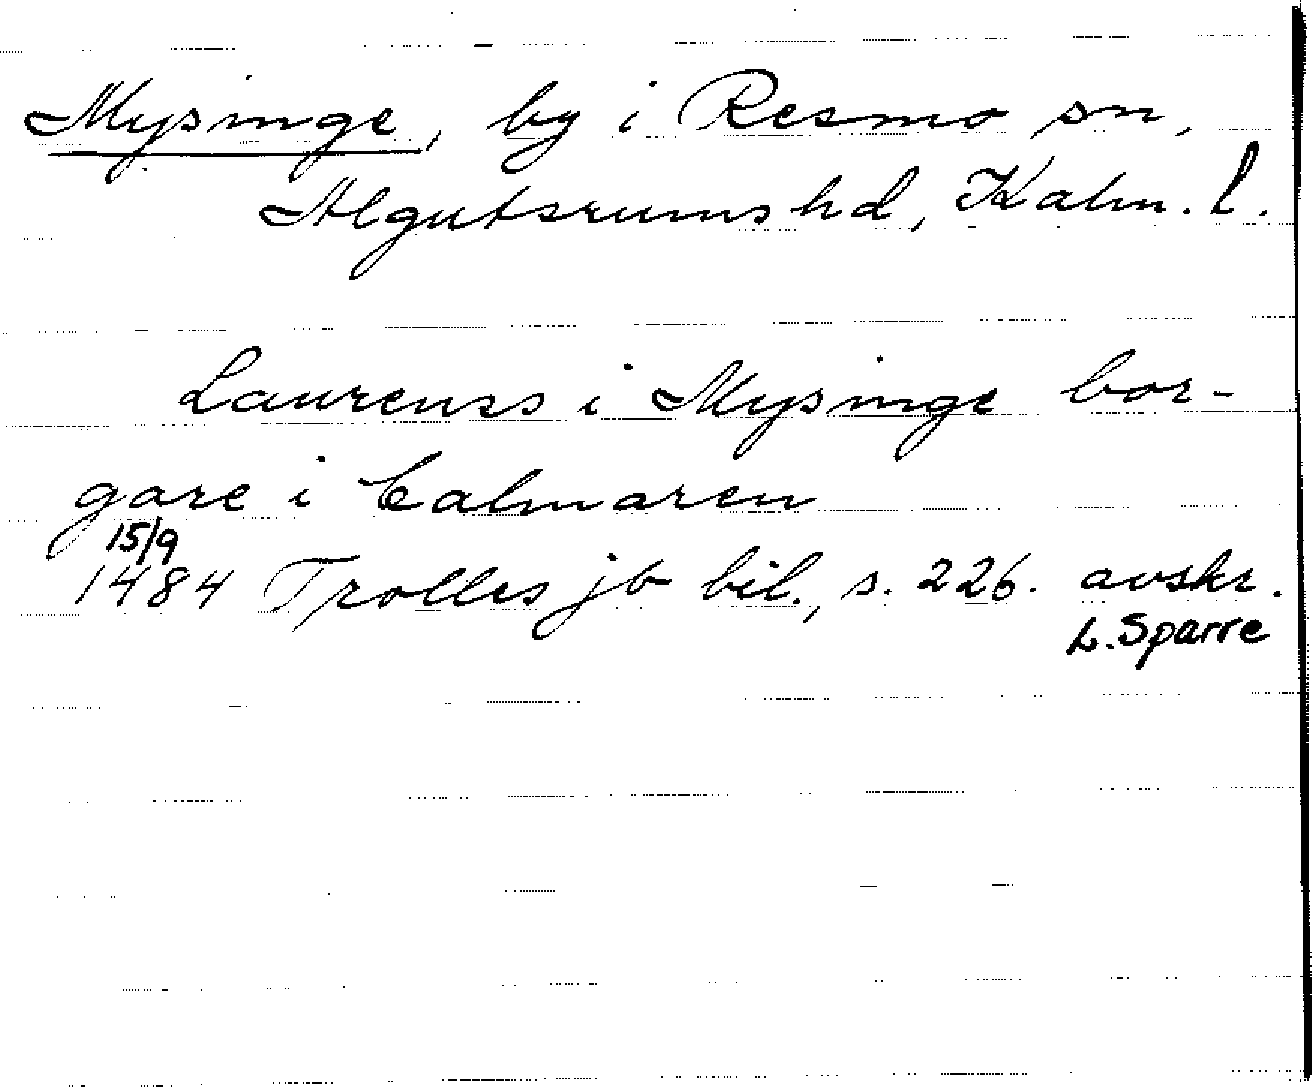 Mysinge, by i Resmo sn,
Algutsrums hd, Kalm. l.
Laurenss i Mysinge bor-
gare i Calmaren
15/9
1484 Trolles jb bil., s. 226. avskr.
L. Sparre